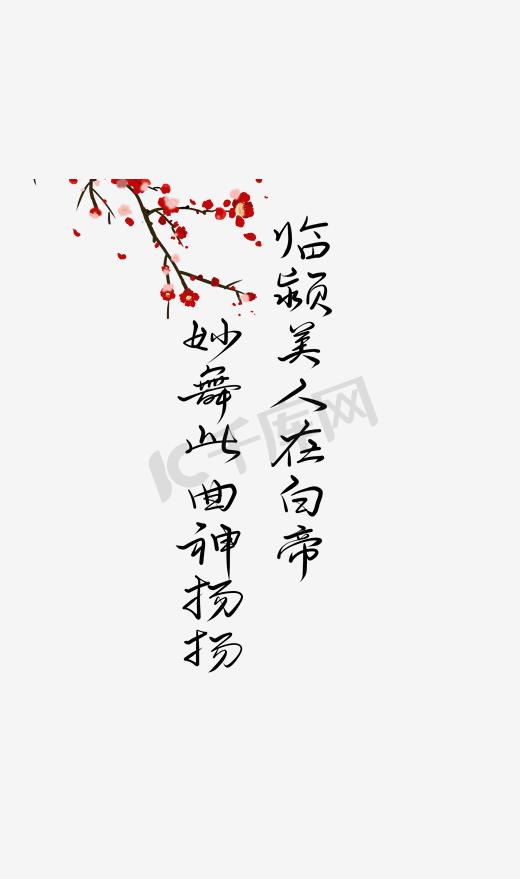 临颍美人在白帝
妙舞此曲神扬扬
IC千库网